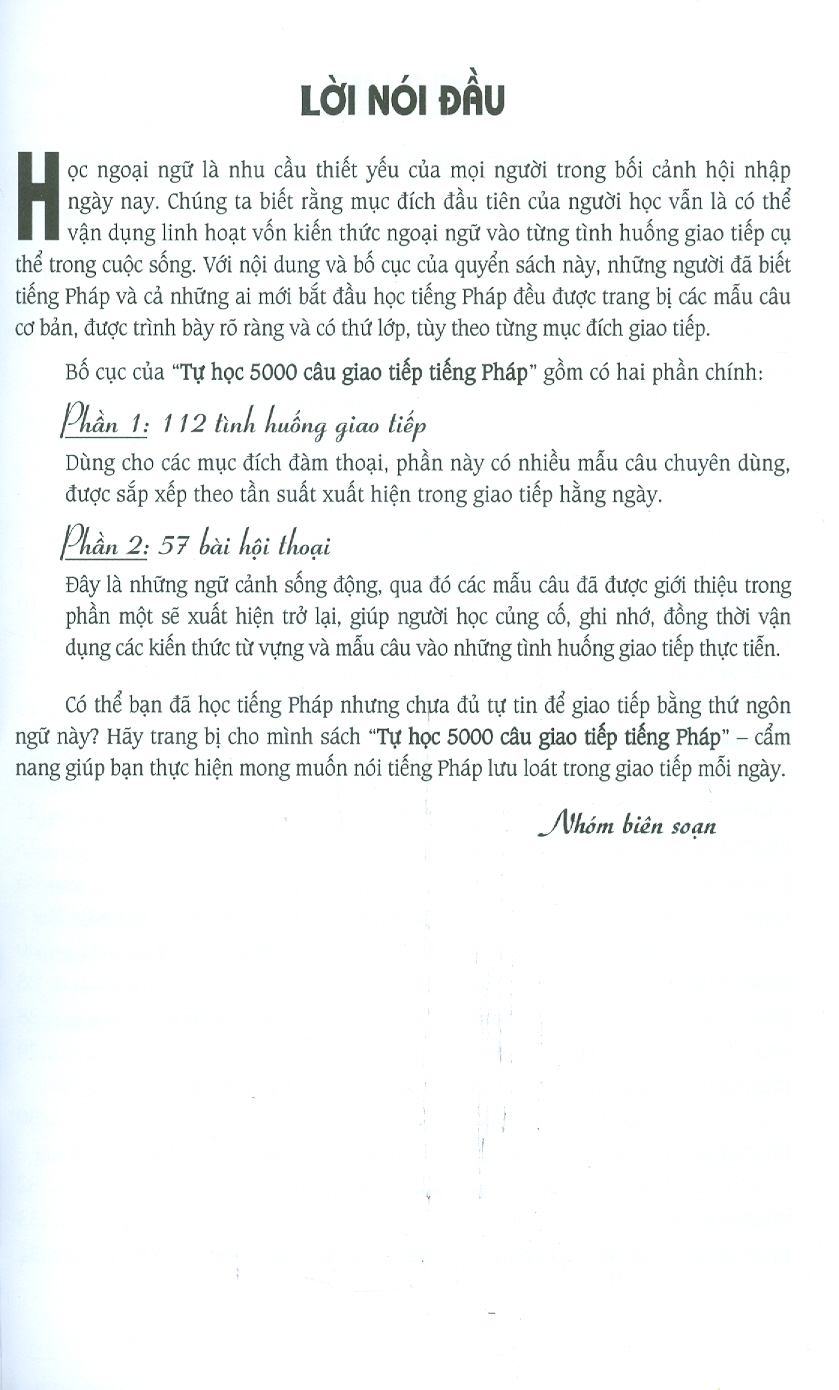 LỜI NÓI ĐẦU
Học ngoại ngữ là nhu cầu thiết yếu của mọi người trong bối cảnh hội nhập
ngày nay. Chúng ta biết rằng mục đích đầu tiên của người học vẫn là có thể
vận dụng linh hoạt vốn kiến thức ngoại ngữ vào từng tình huống giao tiếp cụ
thể trong cuộc sống. Với nội dung và bố cục của quyển sách này, những người đã biết
tiếng Pháp và cả những ai mới bắt đầu học tiếng Pháp đều được trang bị các mẫu câu
cơ bản, được trình bày rõ ràng và có thứ lớp, tùy theo từng mục đích giao tiếp.
Bố cục của “Tự học 5000 câu giao tiếp tiếng Pháp” gồm có hai phần chính:
Phần 1: 112 tình huống giao tiếp
Dùng cho các mục đích đàm thoại, phần này có nhiều mẫu câu chuyên dùng,
được sắp xếp theo tần suất xuất hiện trong giao tiếp hằng ngày.
Phần 2: 57 bài hội thoại
Đây là những ngữ cảnh sống động, qua đó các mẫu câu đã được giới thiệu trong
phần một sẽ xuất hiện trở lại, giúp người học củng cố, ghi nhớ, đồng thời vận
dụng các kiến thức từ vựng và mẫu câu vào những tình huống giao tiếp thực tiễn.
Có thể bạn đã học tiếng Pháp nhưng chưa đủ tự tin để giao tiếp bằng thứ ngôn
ngữ này? Hãy trang bị cho mình sách “Tự học 5000 câu giao tiếp tiếng Pháp” – cẩm
nang giúp bạn thực hiện mong muốn nói tiếng Pháp lưu loát trong giao tiếp mỗi ngày.
Nhóm biên soạn